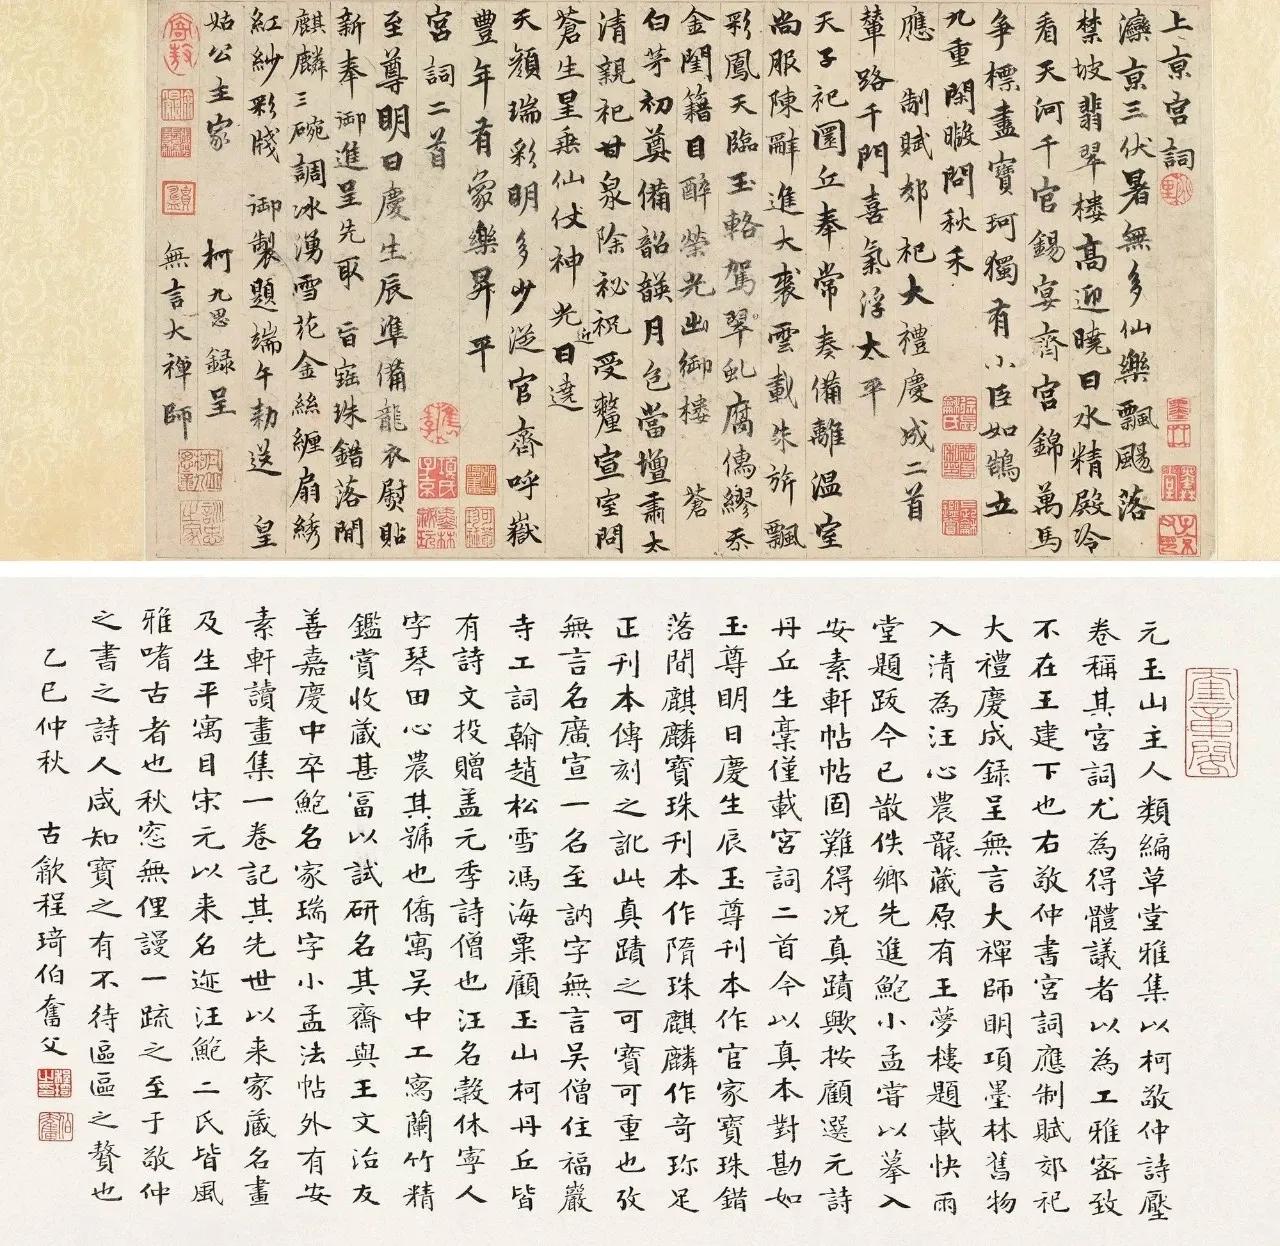 上京宮詞
灤京三伏暑無多仙樂飄颺落
禁坡翡翠樓高迎曉日水精殿冷
看天河千官錫宴齊宮錦萬馬
爭標盡寶珂獨有小臣如鵠立
九重閑暇問秋禾
應制賦郊祀大禮慶成二首
輦路千門喜氣浮太平
天子祀圜丘奉常奏備離溫室
尚服陳辭進大裘雲載朱旂飄
彩鳳天臨玉輅駕翠虬腐儒繆忝
金閨籍目醉榮光出御樓 蒼
白茅初奠備韶頀月色當壇肅太
清親祀甘泉除祕祝受釐宣室問
蒼生星乘仙仗神光近日達
天顏瑞彩明多少從官齊呼嶽
豐年有象樂昇平
宮詞二首
至尊明日慶生辰準備龍衣熨貼
新奉御進呈先取旨寶珠錯落間
麒麟三碗調冰湧雪花金絲纏扇綉
紅紗彩牋御製題端午勅送皇
姑公主家
柯九思錄呈
無言大禪師
元玉山主人類編草堂雅集以柯敬仲詩壓
卷稱其宮詞尤為得體議者以為工雅密致
不在王建下也右敬仲書宮詞應制賦郊祀
大禮慶成錄呈無言大禪師明項墨林舊物
入清為汪心農䪥藏原有王夢樓題載快雨
堂題跋今已散佚鄉先進鮑小孟嘗以摹入
安素軒帖帖固難得況真蹟歟按顧選元詩
丹丘生稾僅載宮詞二首今以真本對勘如
玉尊明日慶生辰玉尊刊本作官家寶珠錯
落間麒麟寶珠刊本作隋珠麒麟作奇珍足
正刊本傳刻之訛此真蹟之可寶可重也攷
無言名廣宣一名至訥字無言吳僧住福嚴
寺工詞翰趙松雪馮海粟顧玉山柯丹丘皆
有詩文投贈蓋元季詩僧也汪名縠休寧人
字琴田心農其號也僑寓吳中工寫蘭竹精
鑑賞收藏甚富以試研名其齋與王文治友
善嘉慶中卒鮑名家瑞字小孟法帖外有安
素軒讀畫集一卷記其先世以來家藏名畫
及生平寓目宋元以来名迹汪鮑二氏皆風
雅嗜古者也秋窓無俚謾一疏之至于敬仲
之書之詩人咸知寶之有不待區區之贅也
乙巳仲秋 古歙程琦伯奮父